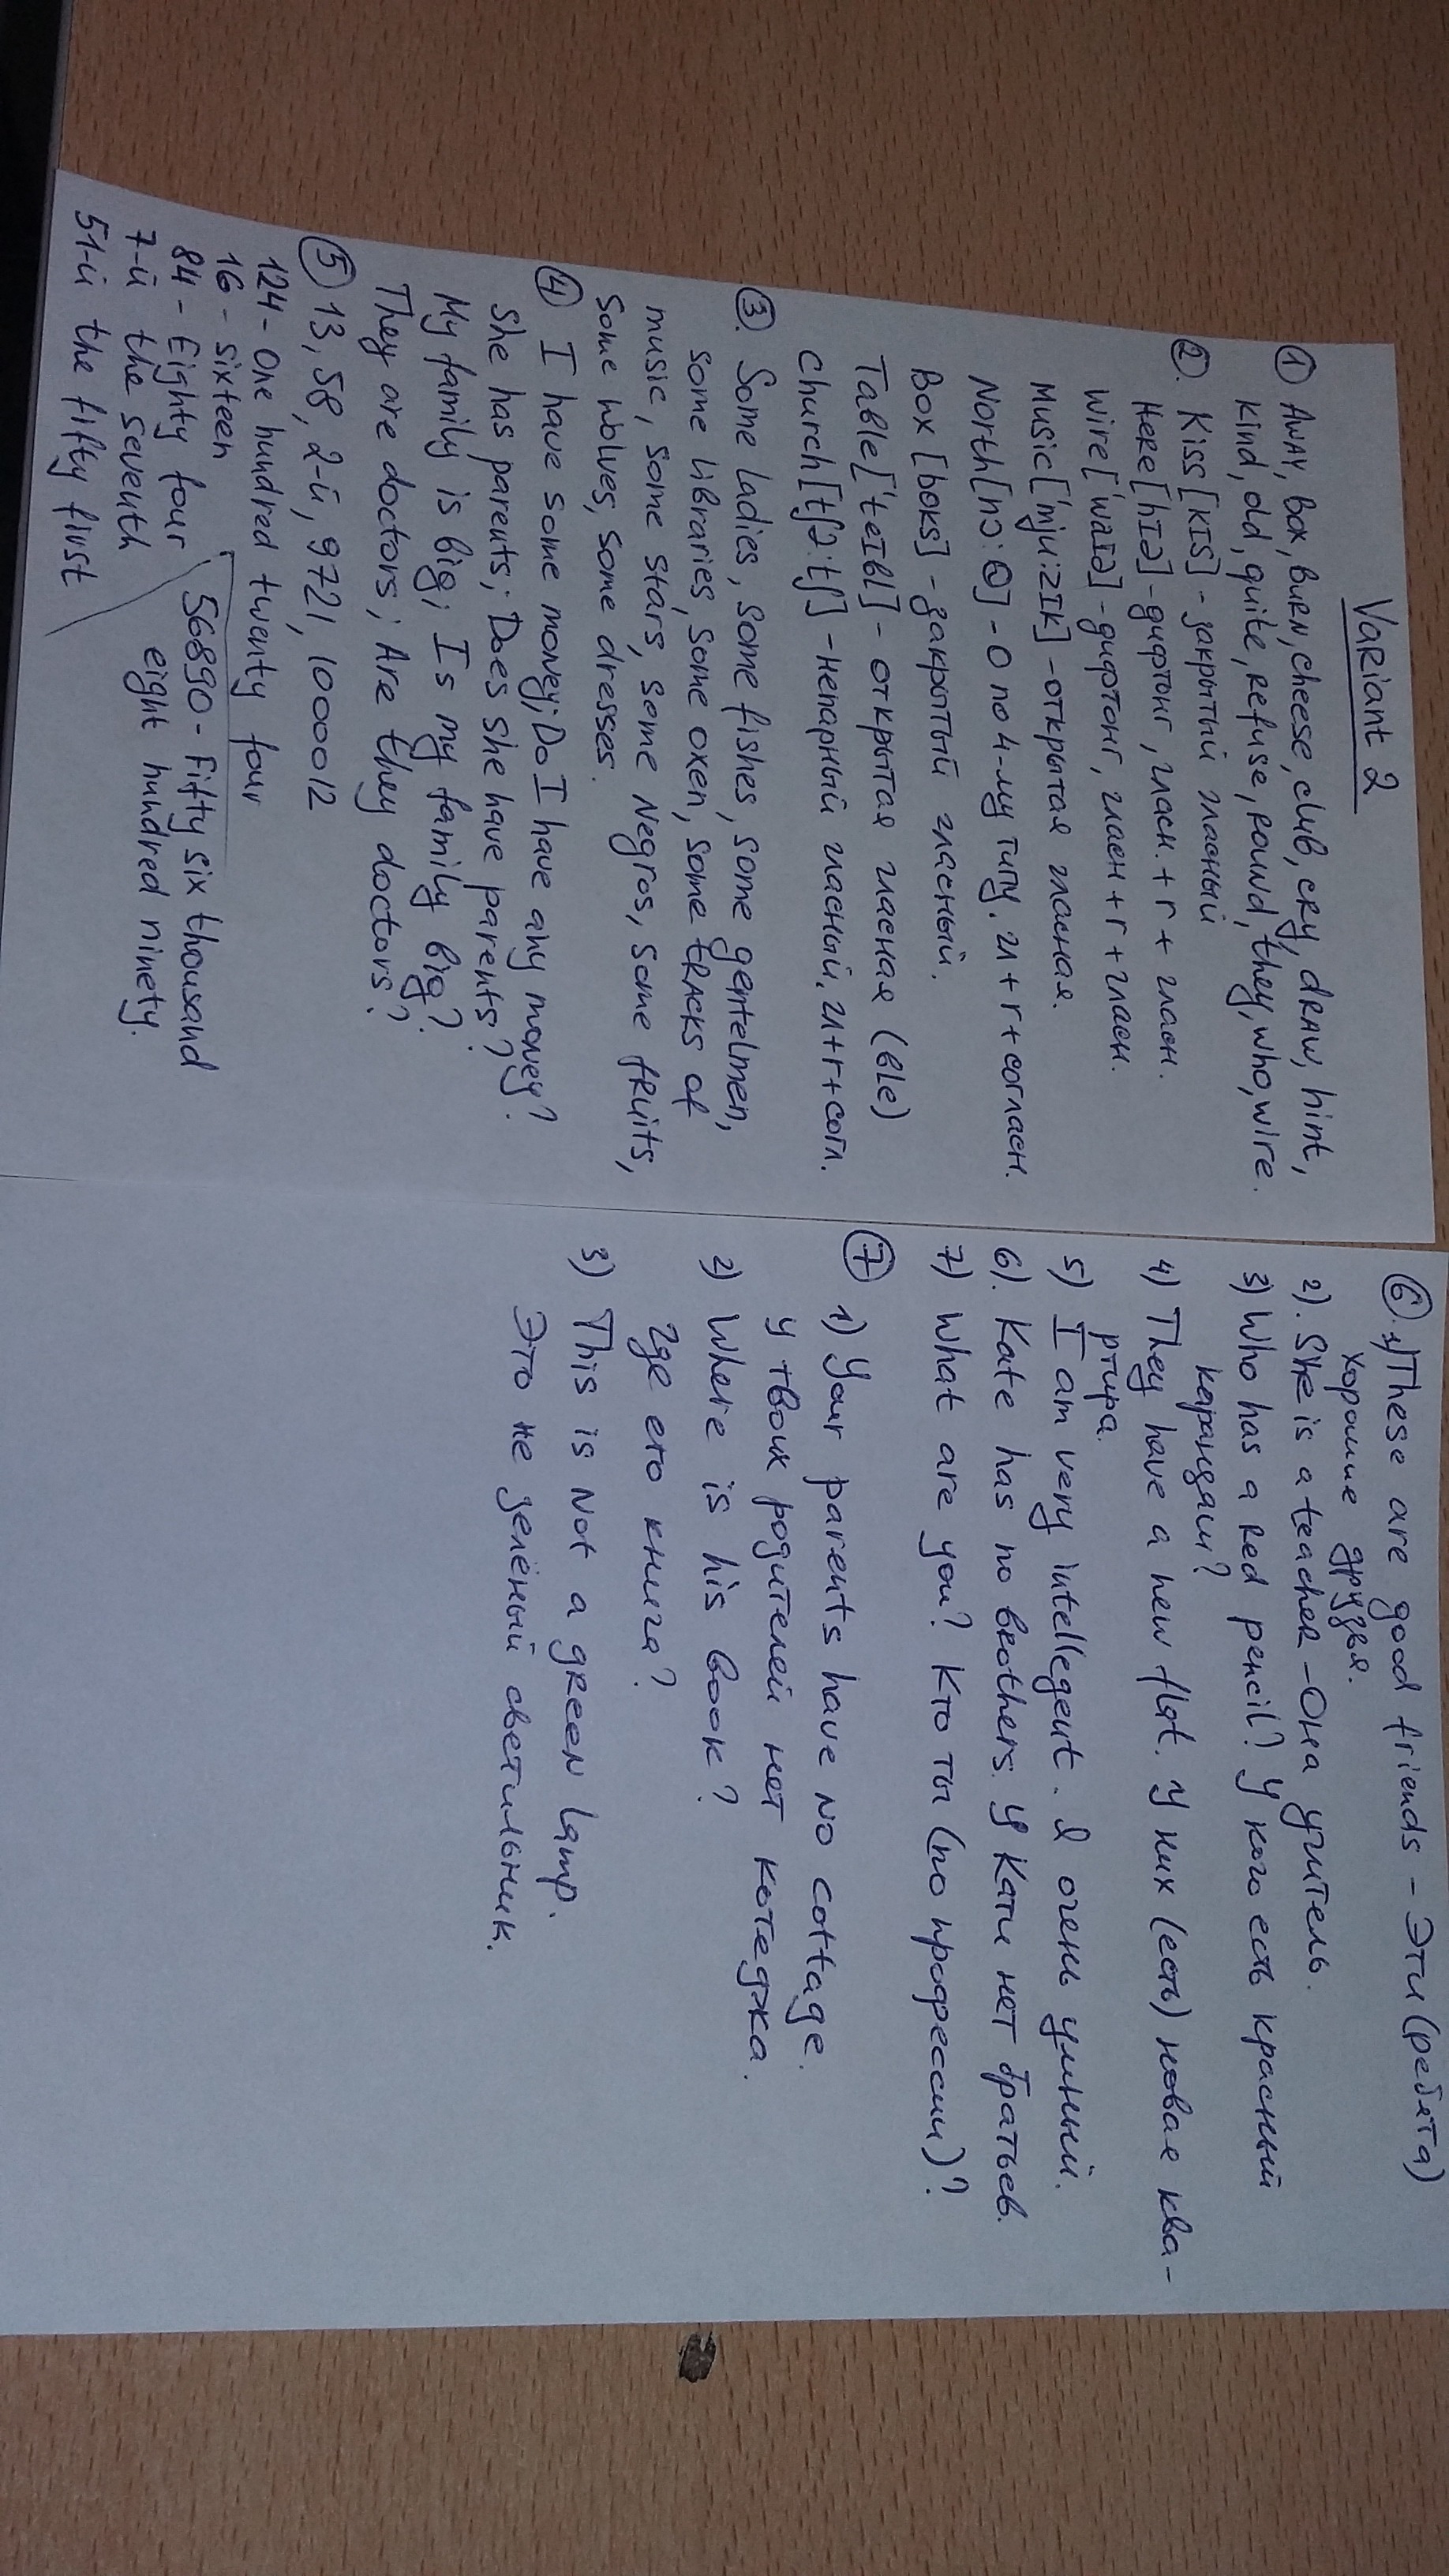 Variant 2
① Away, box, burn, cheese, club, cry, draw, hint,
kind, old, quite, refuse, round, they, who, wire.
②. Kiss [kIs] - закрытый гласный
Here [hIə] - дифтонг, гласн. + r + гласн.
Wire ['waIə] - дифтонг, гласн + r + гласн.
Music ['mju:zIk] - открытая гласная.
North [nɔ:Θ] - O по 4-му типу. и + r + согласн.
Box [boks] - закрытый гласный.
Table ['teIbl] - открытая гласная (ble)
Church [tʃə:tʃ] - непарный гласный. и + r + согл.
③. Some ladies, some fishes, some gentelmen,
some libraries, some oxen, some tracks of
music, some stars, some Negros, some fruits,
some wolves, some dresses.
④ I have some money; Do I have any money?
She has parents; Does she have parents?
My family is big; Is my family big?
They are doctors; Are they doctors?
⑤ 13, 58, 2-й, 9721, 1000012
124 - One hundred twenty four
16 - sixteen
84 - Eighty four
7-й the seventh
51-й the fifty first
56890 - Fifty six thousand
eight hundred ninety.
⑥. 1) These are good friends - Эти (ребята)
хорошие друзья.
2). She is a teacher - Она учитель.
3) Who has a red pencil? У кого есть красный
карандаш?
4) They have a new flat. У них (есть) новая ква-
ртира.
5) I am very intellegent. Я очень умный.
6). Kate has no brothers. У Кати нет братьев.
7) What are you? Кто ты (по профессии)?
⑦ 1) Your parents have no cottage.
У твоих родителей нет котеджа.
2) Where is his book?
Где его книга?
3) This is not a green lamp.
Это не зелёный светильник.